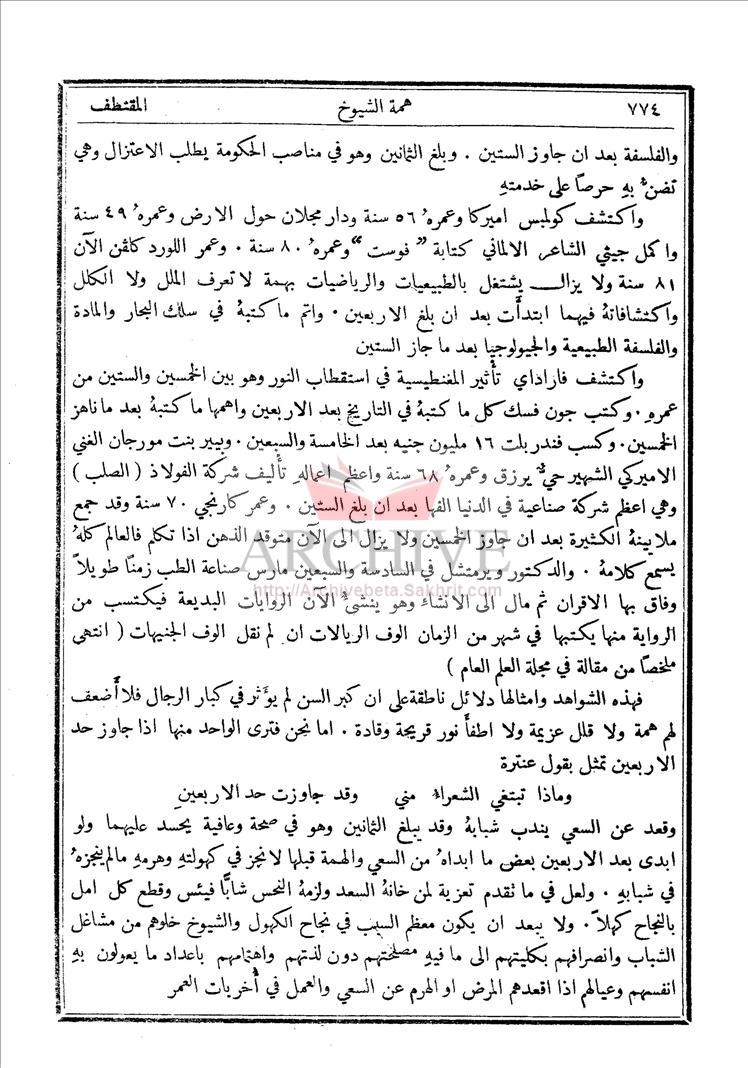 ٧٧٤ همة الشيوخ المقتطف
والفلسفة بعد ان جاوز الستين . وبلغ الثمانين وهو في مناصب الحكومة يطلب الاعتزال وهي
تضنُّ بهِ حرصاً على خدمتهِ
واكتشف كولمبس اميركا وعمرهُ ٥٦ سنة ودار مجلان حول الارض وعمرهُ ٤٩ سنة
واكمل جيثي الشاعر الالماني كتابة ”فوست“ وعمرهُ ٨٠ سنة . وعمر اللورد كلڤن الآن
٨١ سنة ولا يزال يشتغل بالطبيعيات والرياضيات بهمة لا تعرف الملل ولا الكلل
واكتشافاتهُ فيهما ابتدأَت بعد ان بلغ الاربعين . واتم ما كتبهُ في سلك البحار والمادة
والفلسفة الطبيعية والجيولوجيا بعد ما جاز الستين
واكتشف فاراداي تأثير المغنطيسية في استقطاب النور وهو بين الخمسين والستين من
عمرهِ . وكتب جون فسك كل ما كتبهُ في التاريخ بعد الاربعين واهمها ما كتبهُ بعد ما ناهز
الخمسين . وكسب فندربلت ١٦ مليون جنيه بعد الخامسة والسبعين . وبيير بنت مورجان الغني
الاميركي الشهير حيٌّ يرزق وعمرهُ ٦٨ سنة واعظم اعماله تأليف شركة الفولاذ ( الصلب )
وهي اعظم شركة صناعية في الدنيا الفها بعد ان بلغ الستين . وعمر كارنجي ٧٠ سنة وقد جمع
ملايينهُ الكثيرة بعد ان جاوز الخمسين ولا يزال الى الآن متوقد الذهن اذا تكلم فالعالم كلهُ
يسمع كلامهُ . والدكتور ويرمتشل في السادسة والسبعين مارس صناعة الطب زمناً طويلاً
وفاق بها الاقران ثم مال الى الانشاء وهو ينشئُ الآن الروايات البديعة فيكتسب من
الرواية منها يكتبها في شهر من الزمان الوف الريالات ان لم نقل الوف الجنيهات ( انتهى
ملخصاً من مقالة في مجلة العلم العام )
فهذه الشواهد وامثالها دلائل ناطقة على ان كبر السن لم يؤثر في كبار الرجال فلا أَضعف
لهم همة ولا قلل عزيمة ولا اطفأَ نور قريحة وقادة . اما نحن فترى الواحد منها اذا جاوز حد
الاربعين تمثل بقول عنترة
وماذا تبتغي الشعراء مني وقد جاوزت حد الاربعينِ
وقعد عن السعي يندب شبابهُ وقد يبلغ الثمانين وهو في صحة وعافية يحسد عليهما ولو
ابدى بعد الاربعين بعض ما ابداهُ من السعي والهمة قبلها لانجز في كهولتهِ وهرمهِ ما لم ينجزهُ
في شبابهِ . ولعل في ما تقدم تعزية لمن خانهُ السعد ولزمهُ النحس شابًّا فيئس وقطع كل امل
بالنجاح كهلاً . ولا يبعد ان يكون معظم السبب في نجاح الكهول والشيوخ خلوهم من مشاغل
الشباب وانصرافهم بكليتهم الى ما فيهِ مصلحتهم دون لذتهم واهتمامهم باعداد ما يعولون بهِ
انفسهم وعيالهم اذا اقعدهم المرض او الهرم عن السعي والعمل في أُخريات العمر
ARCHIVE
http://Archivebeta.Sakhrit.com